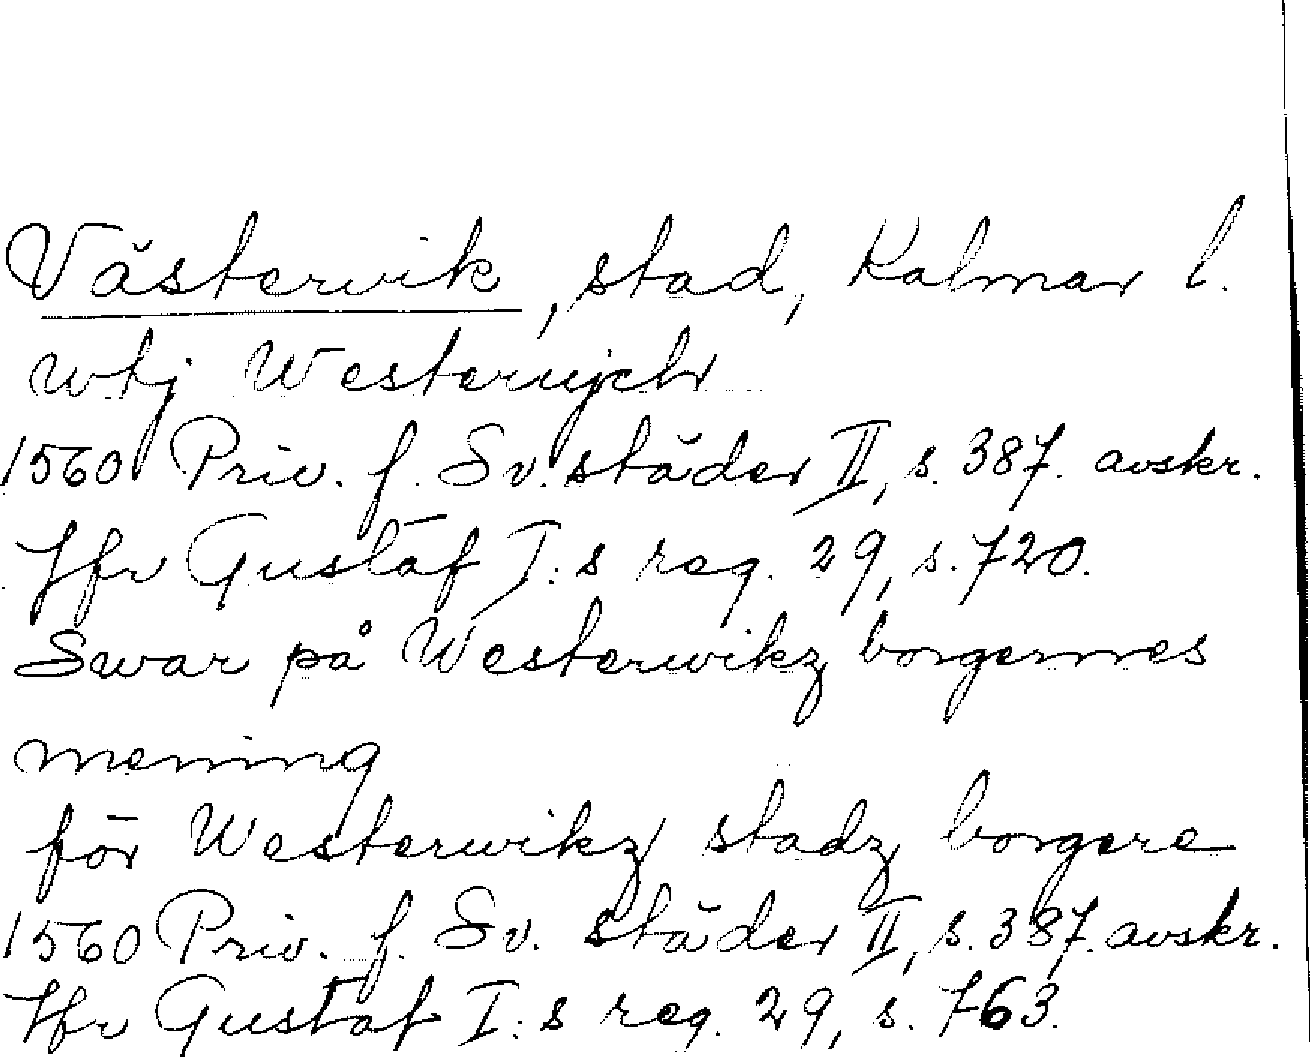 Västervik, stad, Kalmar l.
wtj Westerwijck
1560 Priv. f. Sv. städer II, s. 387. avskr.
Jfr Gustaf I:s reg. 29, s. 720.
Swar på Westerwikz borgernes
mening
för Westerwikz stadz borgere
1560 Priv. f. Sv. städer II, s. 387. avskr.
Jfr Gustaf I:s reg. 29, s. 763.